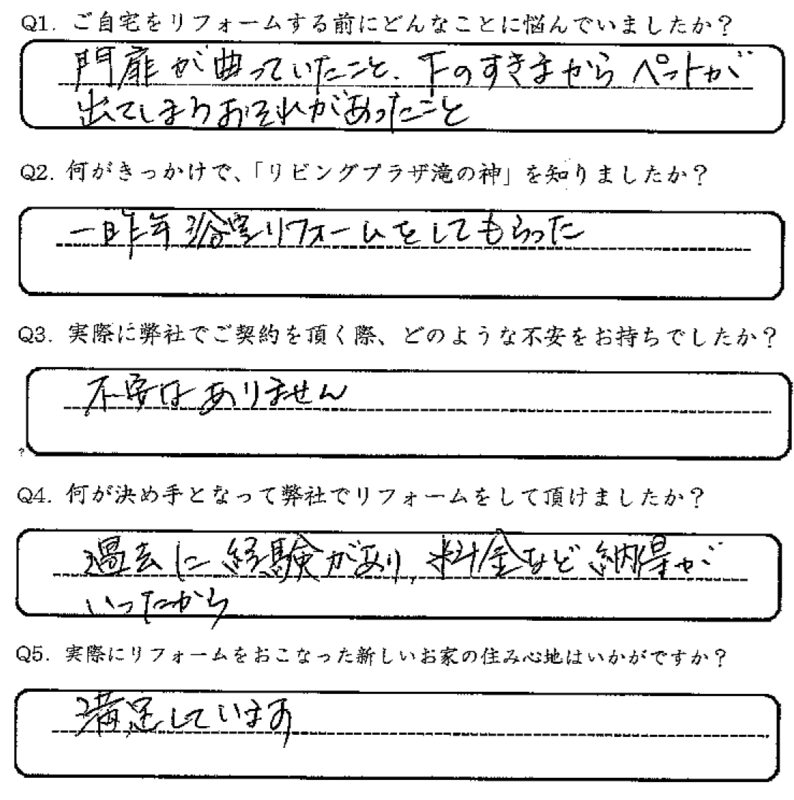 Q1. ご自宅をリフォームする前にどんなことに悩んでいましたか？
門扉が曲っていたこと、下のすきまからペットが
出てしまうおそれがあったこと
Q2. 何がきっかけで、「リビングプラザ滝の神」を知りましたか？
一昨年浴室リフォームをしてもらった
Q3. 実際に弊社でご契約を頂く際、どのような不安をお持ちでしたか？
不安はありません
Q4. 何が決め手となって弊社でリフォームをして頂けましたか？
過去に経験があり、料金など納得が
いったから
Q5. 実際にリフォームをおこなった新しいお家の住み心地はいかがですか？
満足しています